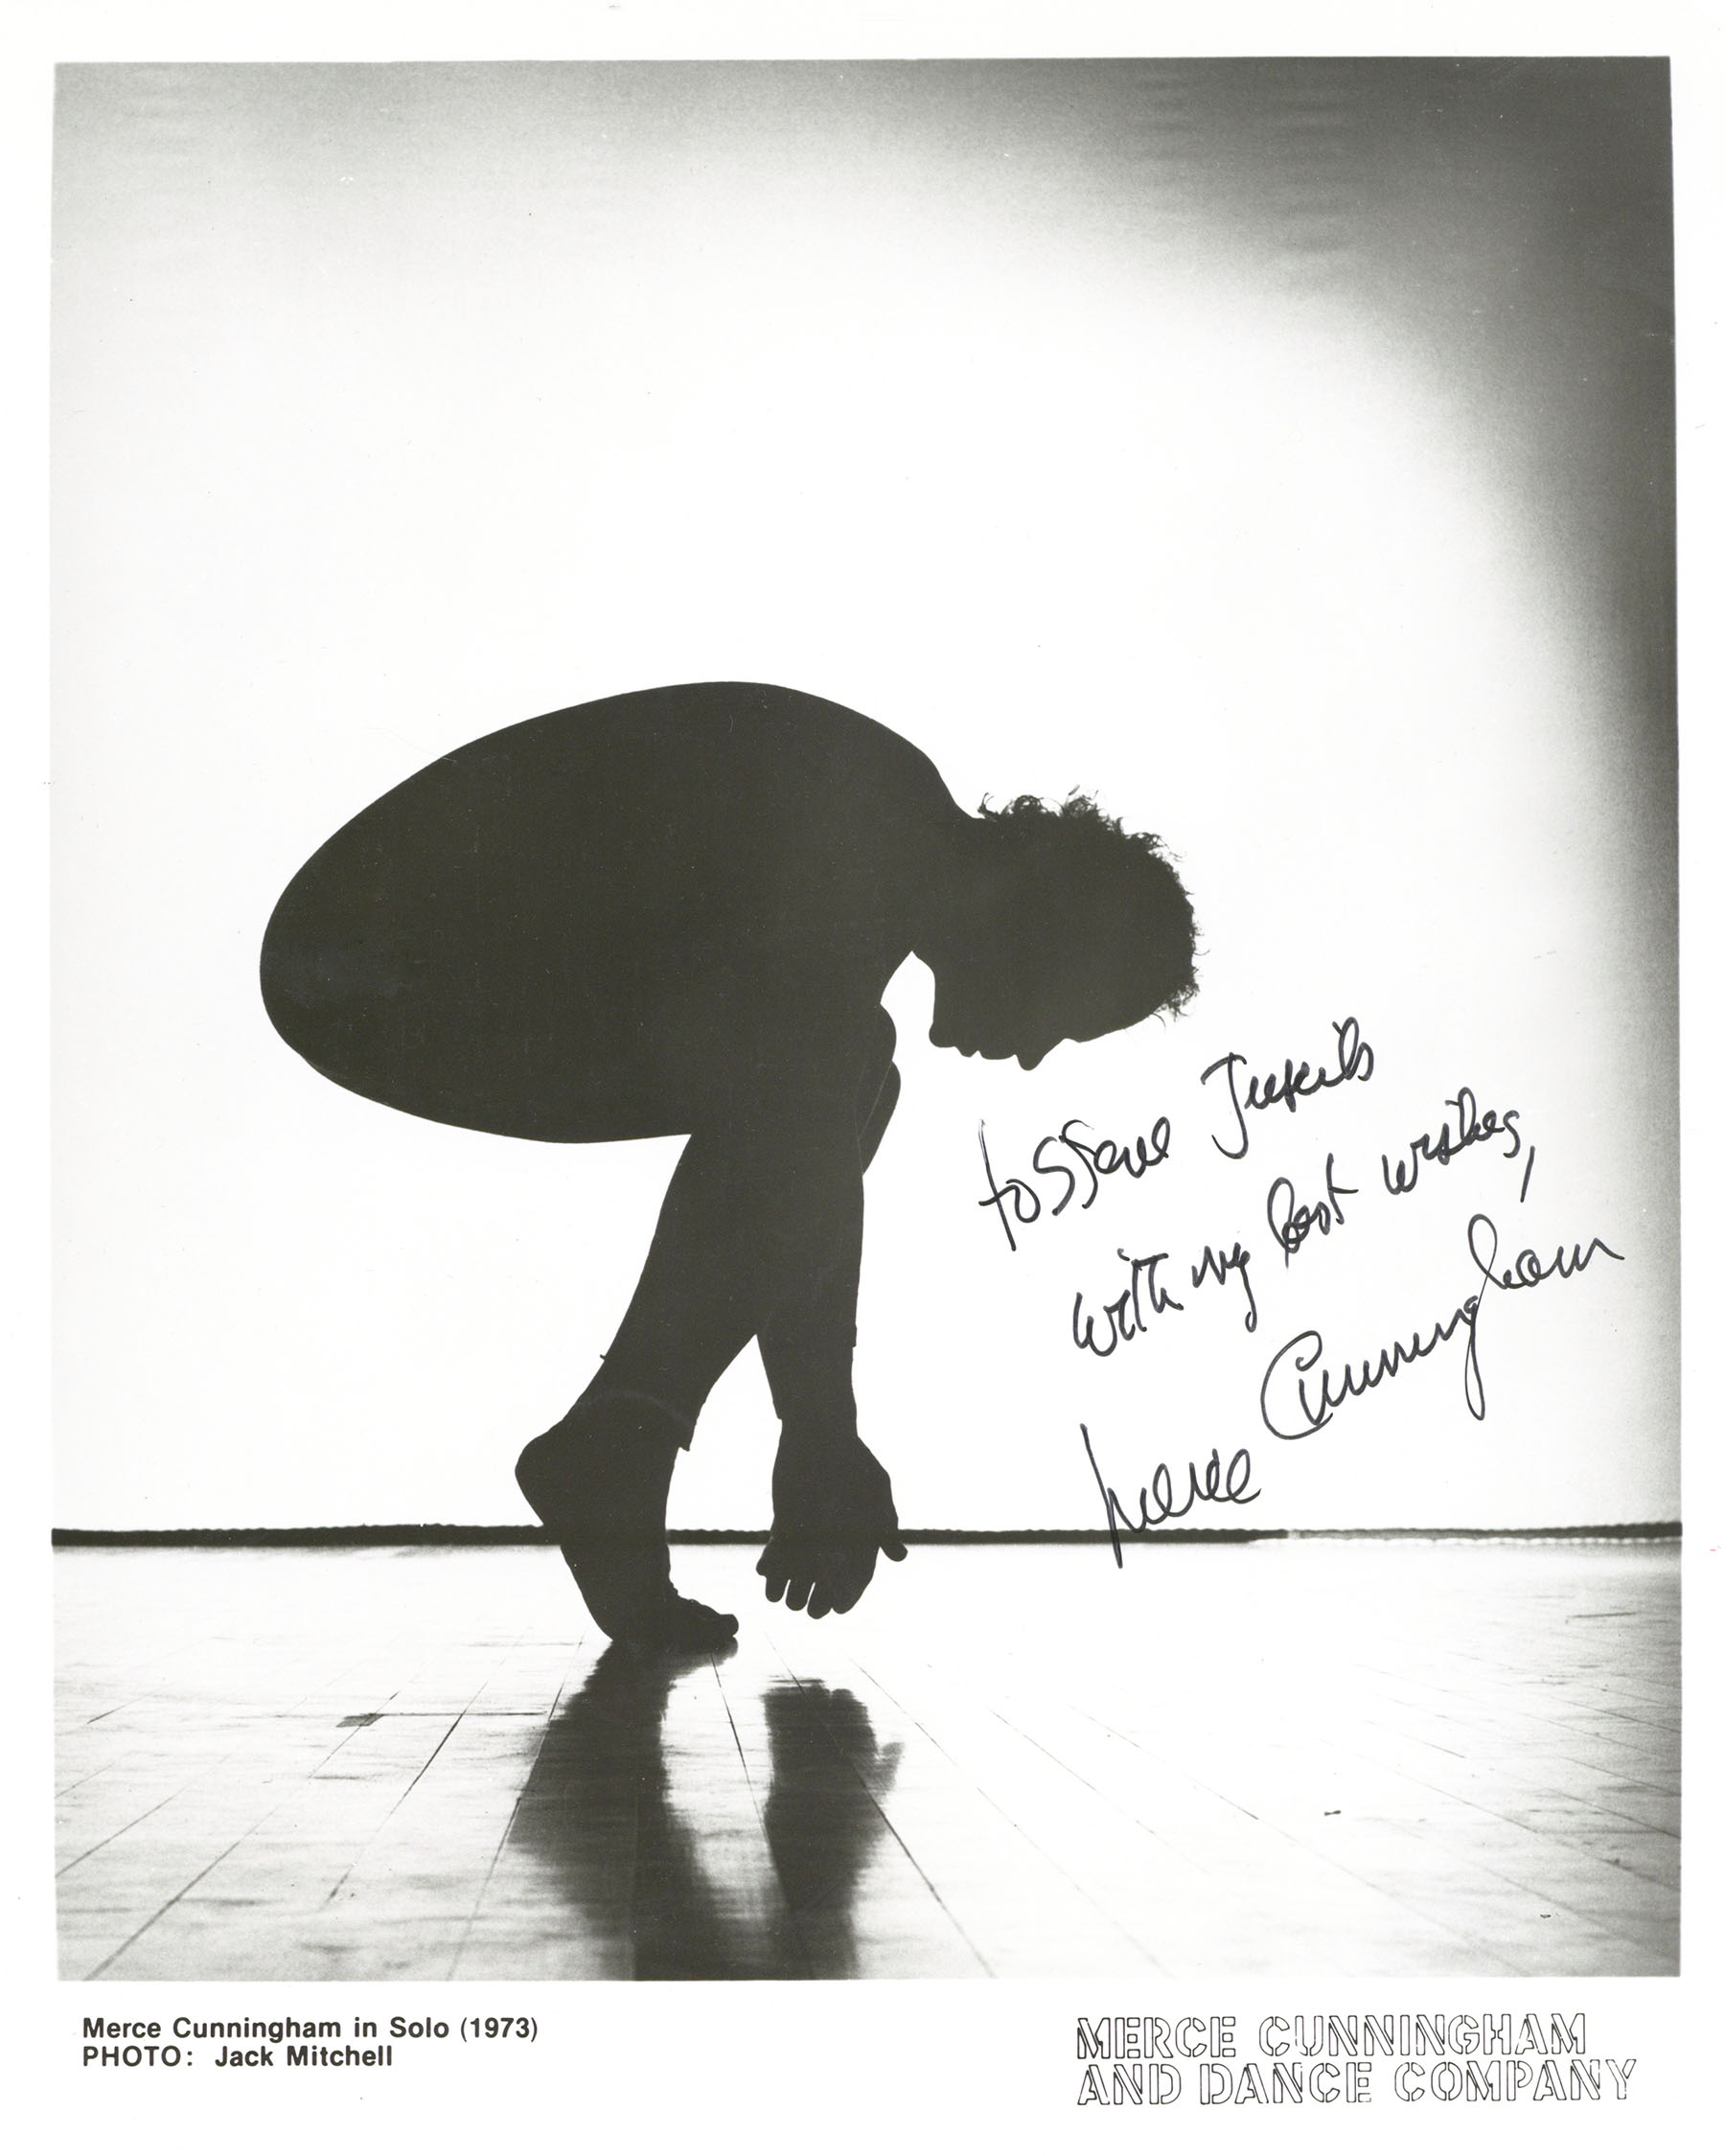 to Steve
with my best wishes,
Merce Cunningham
Merce Cunningham in Solo (1973)
PHOTO: Jack Mitchell
MERCE CUNNINGHAM
AND DANCE COMPANY